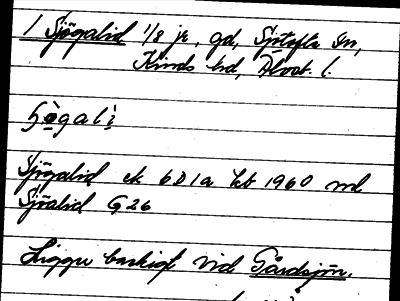 1 Sjögalid 1/8 je, gd, Sjötofta sn,
Kinds hd, Älvsb. l.
Sjögalid ek 6D1a kb 1960 md
Sjöalid G26
Ligger backigt vid Gårdsjön.